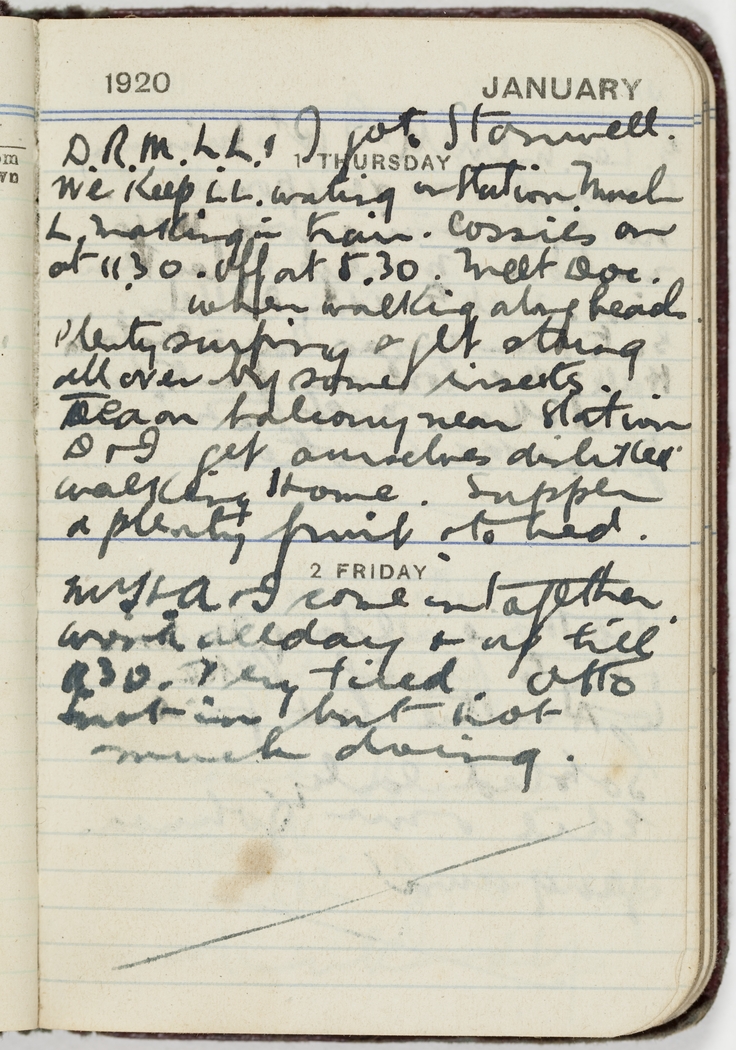 1920 JANUARY
D.R.M. L L. & I got Stanwell.
1 THURSDAY
We keep L.L. waiting on Station. Much
L. making in train. Cossies on
at 11.30. Off at 5.30. Meet Doc.
when walking along beach.
Plenty surfing & get stung
all over by some insects.
Tea on balcony near Station
D & I get ourselves disliked
walking Home. Supper
& plenty fruit & to bed.
2 FRIDAY
& I come in together
work all day & up till
Very tired Otto
but not
much doing.